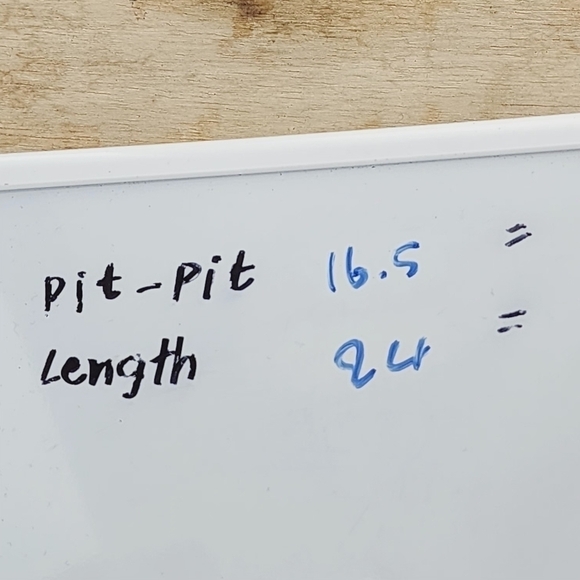 Pit-Pit 16.5 "
Length 24 "